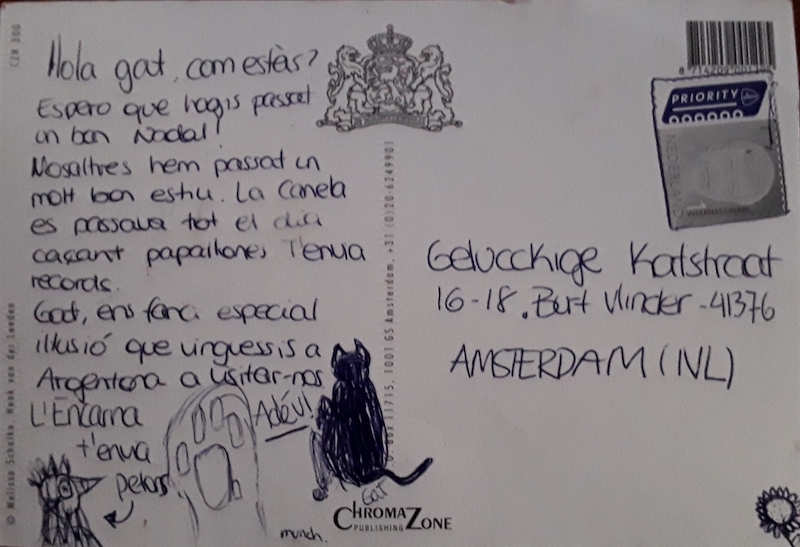 Hola gat, com estàs?
Espero que hagis passat
un bon Nadal!
Nosaltres hem passat un
molt bon estiu. La Canela
es passava tot el dia
caçant papallones. T'envia
records.
Gat, ens faria especial
il·lusió que vinguessis a
Argentona a visitar-nos
L'Encarna
t'envia
petons.
Adéu!
Gat
munch.
CZM 300
© Melissa Schalke, Henk van der Leeden
, 1001 GS Amsterdam, +31 (0)20-6249901
CHROMAZONE
PUBLISHING
PRIORITY
NEDERLAND
1 INTERNATIONAAL
Gelucckige Katstraat
16-18. Burt Vlinder - 41376
AMSTERDAM (NL)